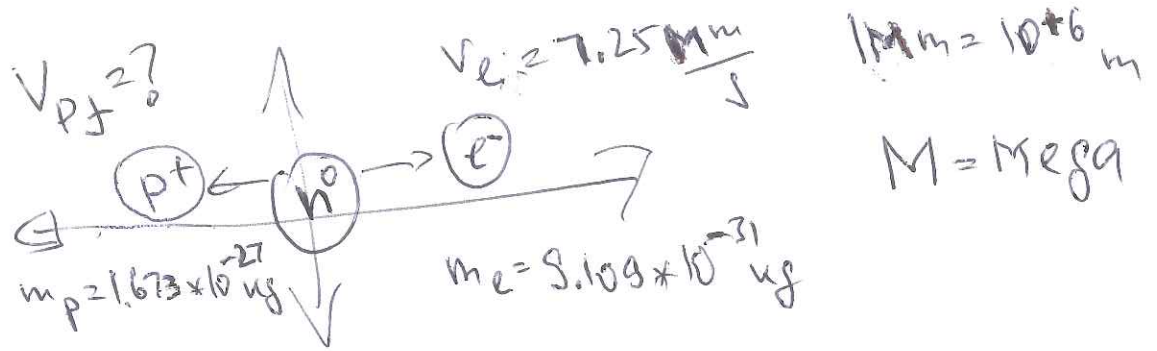 V_pf=?
V_ei=7.25 Mm/s
1Mm=10^+6 m
M=Mega
p+
n^0
e^-
m_p=1.673*10^-27 kg
m_e=9.109*10^-31 kg